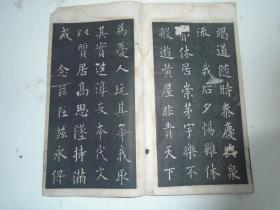 竭道隨時泰慶與泉
流我后夕惕雖休
休居崇茅宇樂不
般遊黃屋非貴天下
為憂人玩其華我取
其實還淳反本代文
以質居高思墜持滿
戒念茲在茲永